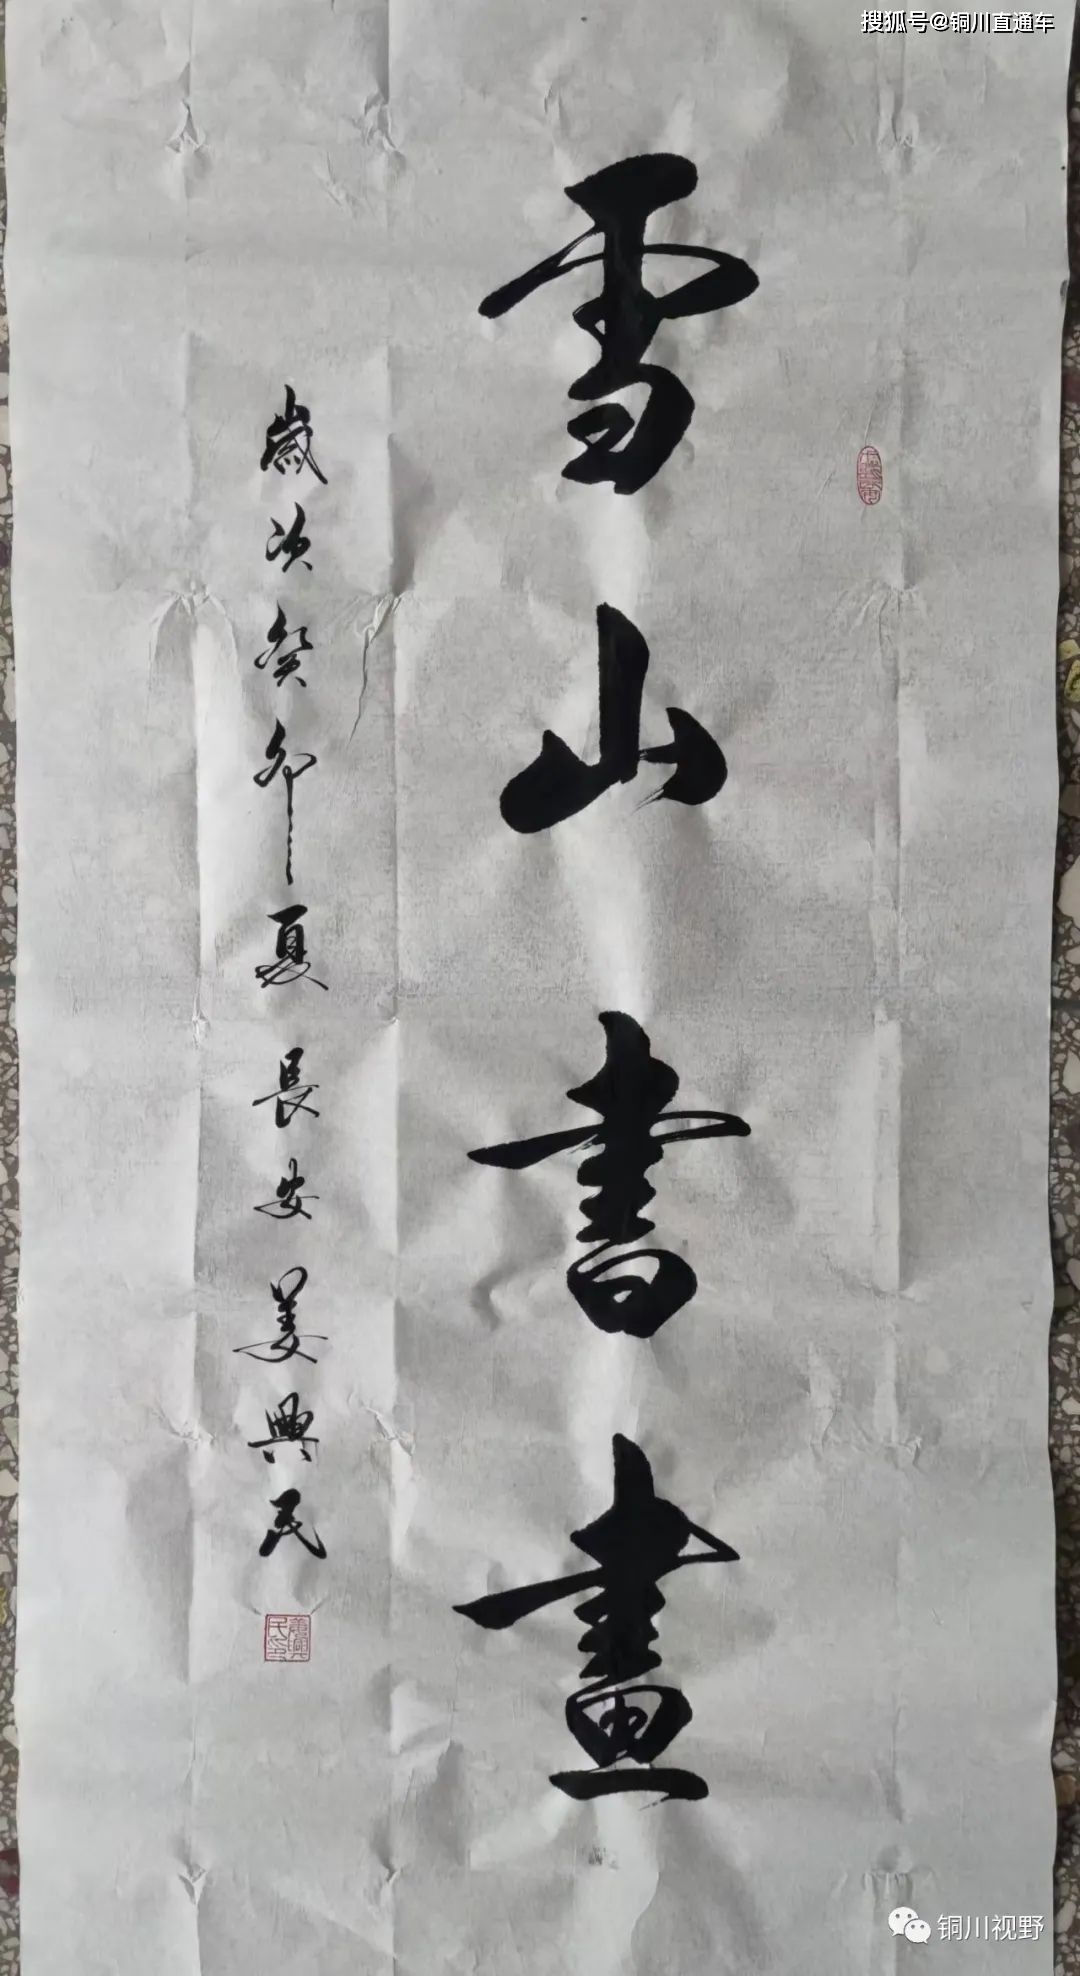 搜狐号@铜川直通车
雪山書畫
歲次癸卯夏長安姜興民
姜興民印
铜川视野